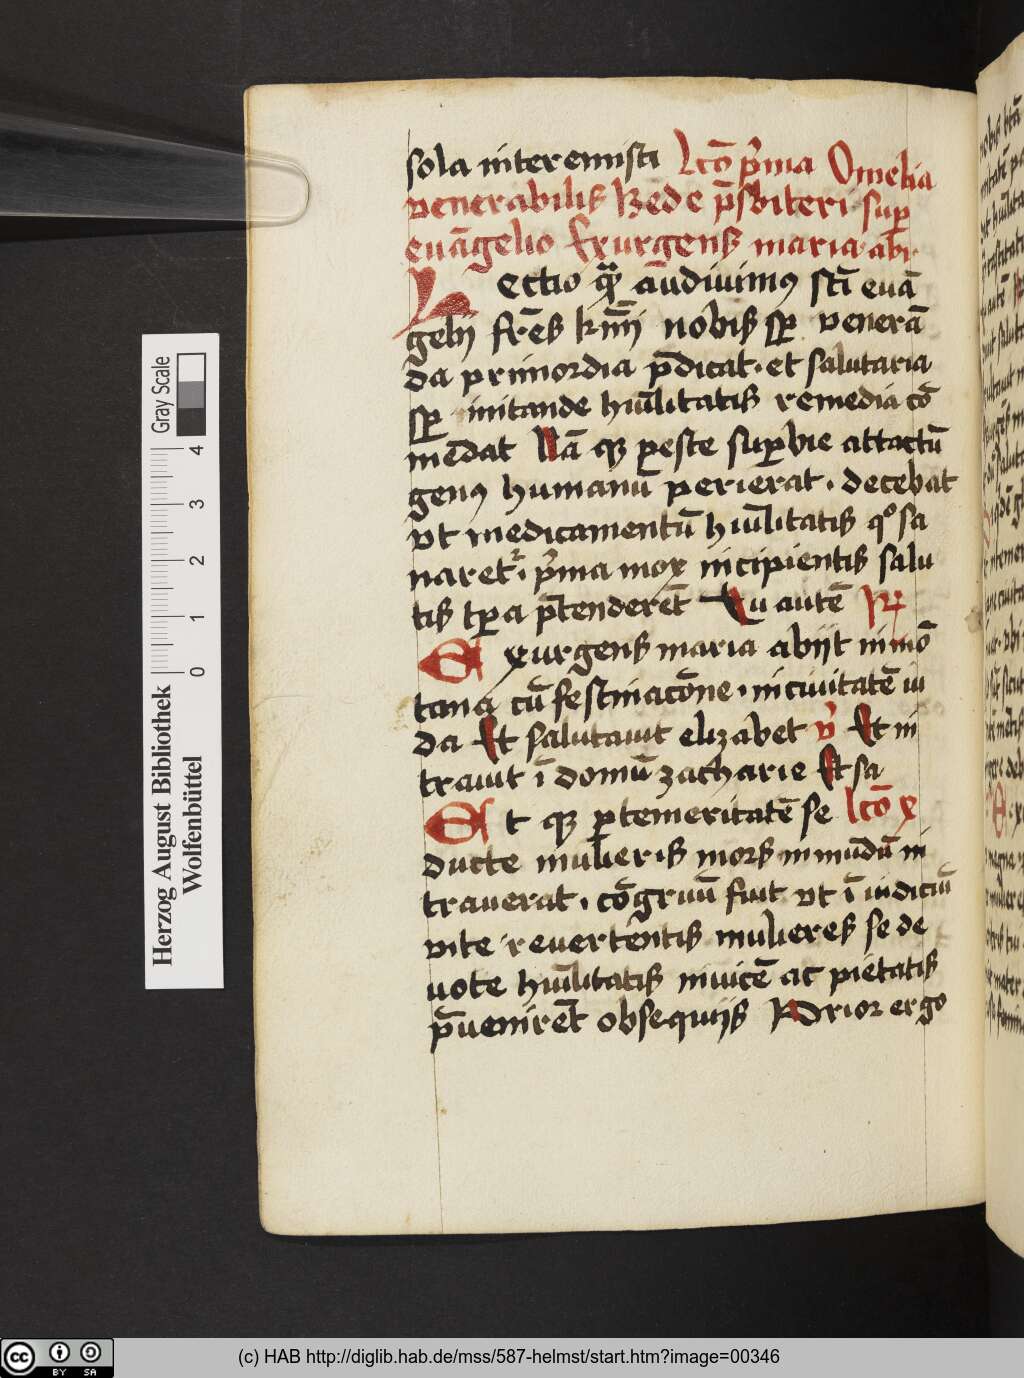 sola interemisti lcō p̄ma Omelia
venerabilis Bede p̄sbiteri sup̄
euāgelio Exurgens maria abi
Lectio quā audiuimꝰ scī euā
gelij fr̄es kr̄mi nobis sꝑ venerā
da primordia p̄dicat · et salutaria
sꝑ imitande hūilitatis remedia cō
mēdat Nā qꝫ peste suꝑbie attactū
genꝰ humanū perierat · decebat
vt medicamentū hūilitatis qͦ sa
naretᷣ · p̄ma mox incipientis salu
tis tꝑa p̄tenderēt Tu autē R̷
Exurgens maria abijt in mō
tana cū festinacōne · in ciuitatē iu
da Et salutauit elizabet v̄ Et in
trauit ī domū zacharie Et sa
Et qꝫ ꝑ temeritatē se lcō x
ducte mulieris mors in mūdū in
trauerat · cōgruū fuit vt ī iudiciū
vite reuertentis mulieres se de
uote hūilitatis inuicē ac pietatis
p̄uenirēt obsequijs Prior ergo
Herzog August Bibliothek
Wolfenbüttel
Gray Scale
0 1 2 3 4
cc BY SA
(c) HAB http://diglib.hab.de/mss/587-helmst/start.htm?image=00346